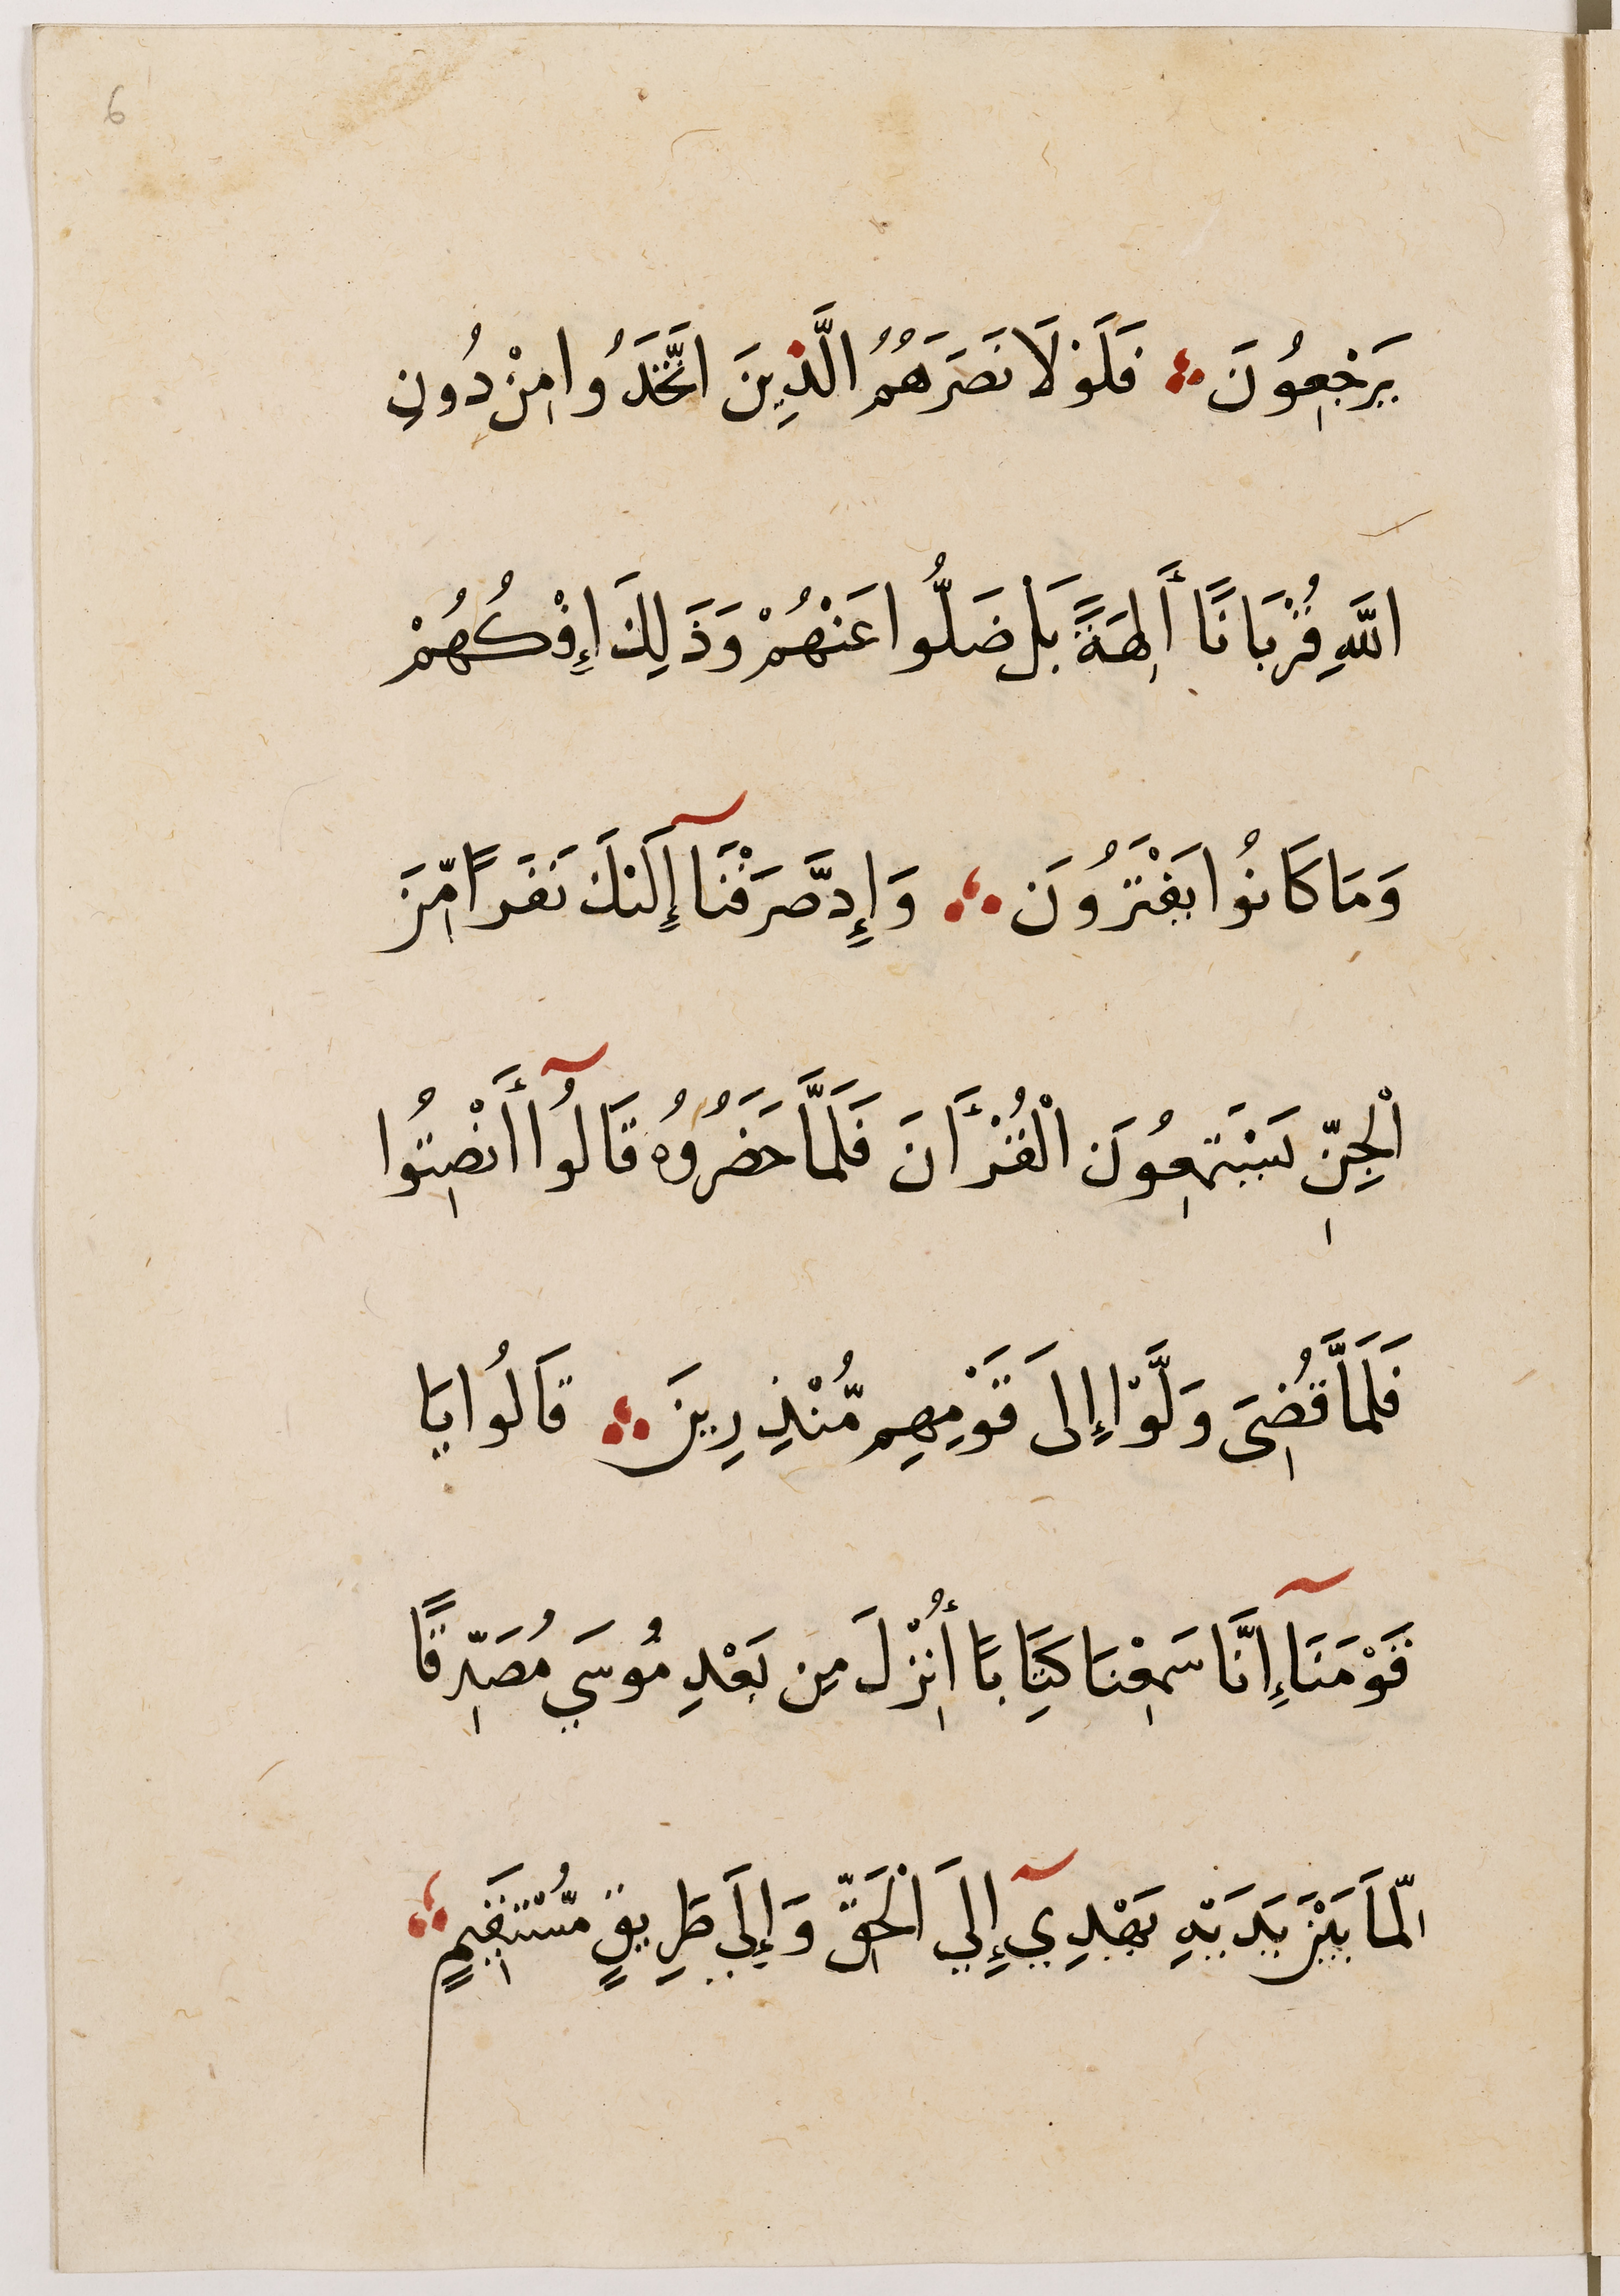 6
يَرْجِعُونَ ۞ فَلَوْلَا نَصَرَهُمُ الَّذِينَ اتَّخَذُوا مِنْ دُونِ
اللَّهِ قُرْبَانًا أَلِهَةً بَلْ ضَلُّوا عَنْهُمْ وَذَلِكَ إِفْكُهُمْ
وَمَا كَانُوا يَفْتَرُونَ ۞ وَإِد صَّرَفْنَآ إِلَيْكَ نَفَرًا مِّنَ
الْجِنِّ يَسْتَمِعُونَ الْقُرْأَانَ فَلَمَّا حَضَرُوهُ قَالُوآ أَنْصِتُوا
فَلَمَّا قُضِىَ وَلَّوْا إِلىَ قَوْمِهِم مُّنْذِرِينَ ۞ قَالُوا يَا
قَوْمَنَآ إِنَّا سَمِعْنَا كِتَابًا أُنْزِلَ مِن بَعْدِ مُوسَي مُصَدِّقًا
لِّمَا بَيْنَ يَدَيْهِ يَهْدِيٓ إِلَي الْحَقِّ وَإِلَي طَرِيقٍ مُّسْتَقِيمٍ ۞